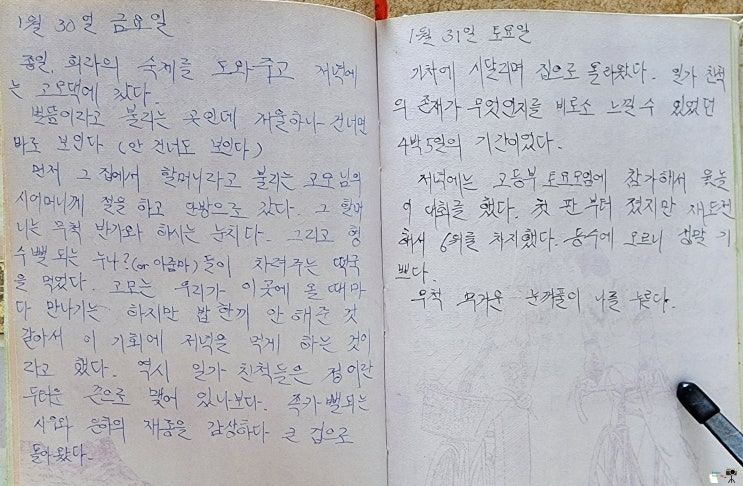 1월 30일 금요일
종일, 희라의 숙제를 도와주고 저녁에
는 고모댁에 갔다.
뻘뜸이라고 불리는 곳인데 개울하나 건너면
바로 보인다 (안 건너도 보인다)
먼저 그 집에서 할머니라고 불리는 고모님의
시어머니께 절을 하고 안방으로 갔다. 그 할머
니는 무척 반가와 하시는 눈치다. 그리고 형
수뻘 되는 누나?(or 아줌마)들이 차려주는 떡국
을 먹었다. 고모는 우리가 이곳에 올 때마
다 만나기는 하지만 밥 한끼 안 해준 것
같아서 이 기회에 저녁을 먹게 하는 것이
라고 했다. 역시 일가 친척들은 정이란
두터운 끈으로 맺어 있나보다. 족카뻘되는
와 은하의 재롱을 감상하다 큰 집으로
돌아왔다.
1월 31일 토요일
기차에 시달리며 집으로 올라왔다. 일가 친척
의 존재가 무엇인지를 비로소 느낄 수 있었던
4박 5일의 기간이었다.
저녁에는 고등부 토요모임에 참가해서 윷놀
이 대회를 했다. 첫 판부터 졌지만 재도전
해서 6위를 차지했다. 등수에 오르니 정말 기
쁘다.
무척 무거운 눈꺼풀이 나를 누른다.